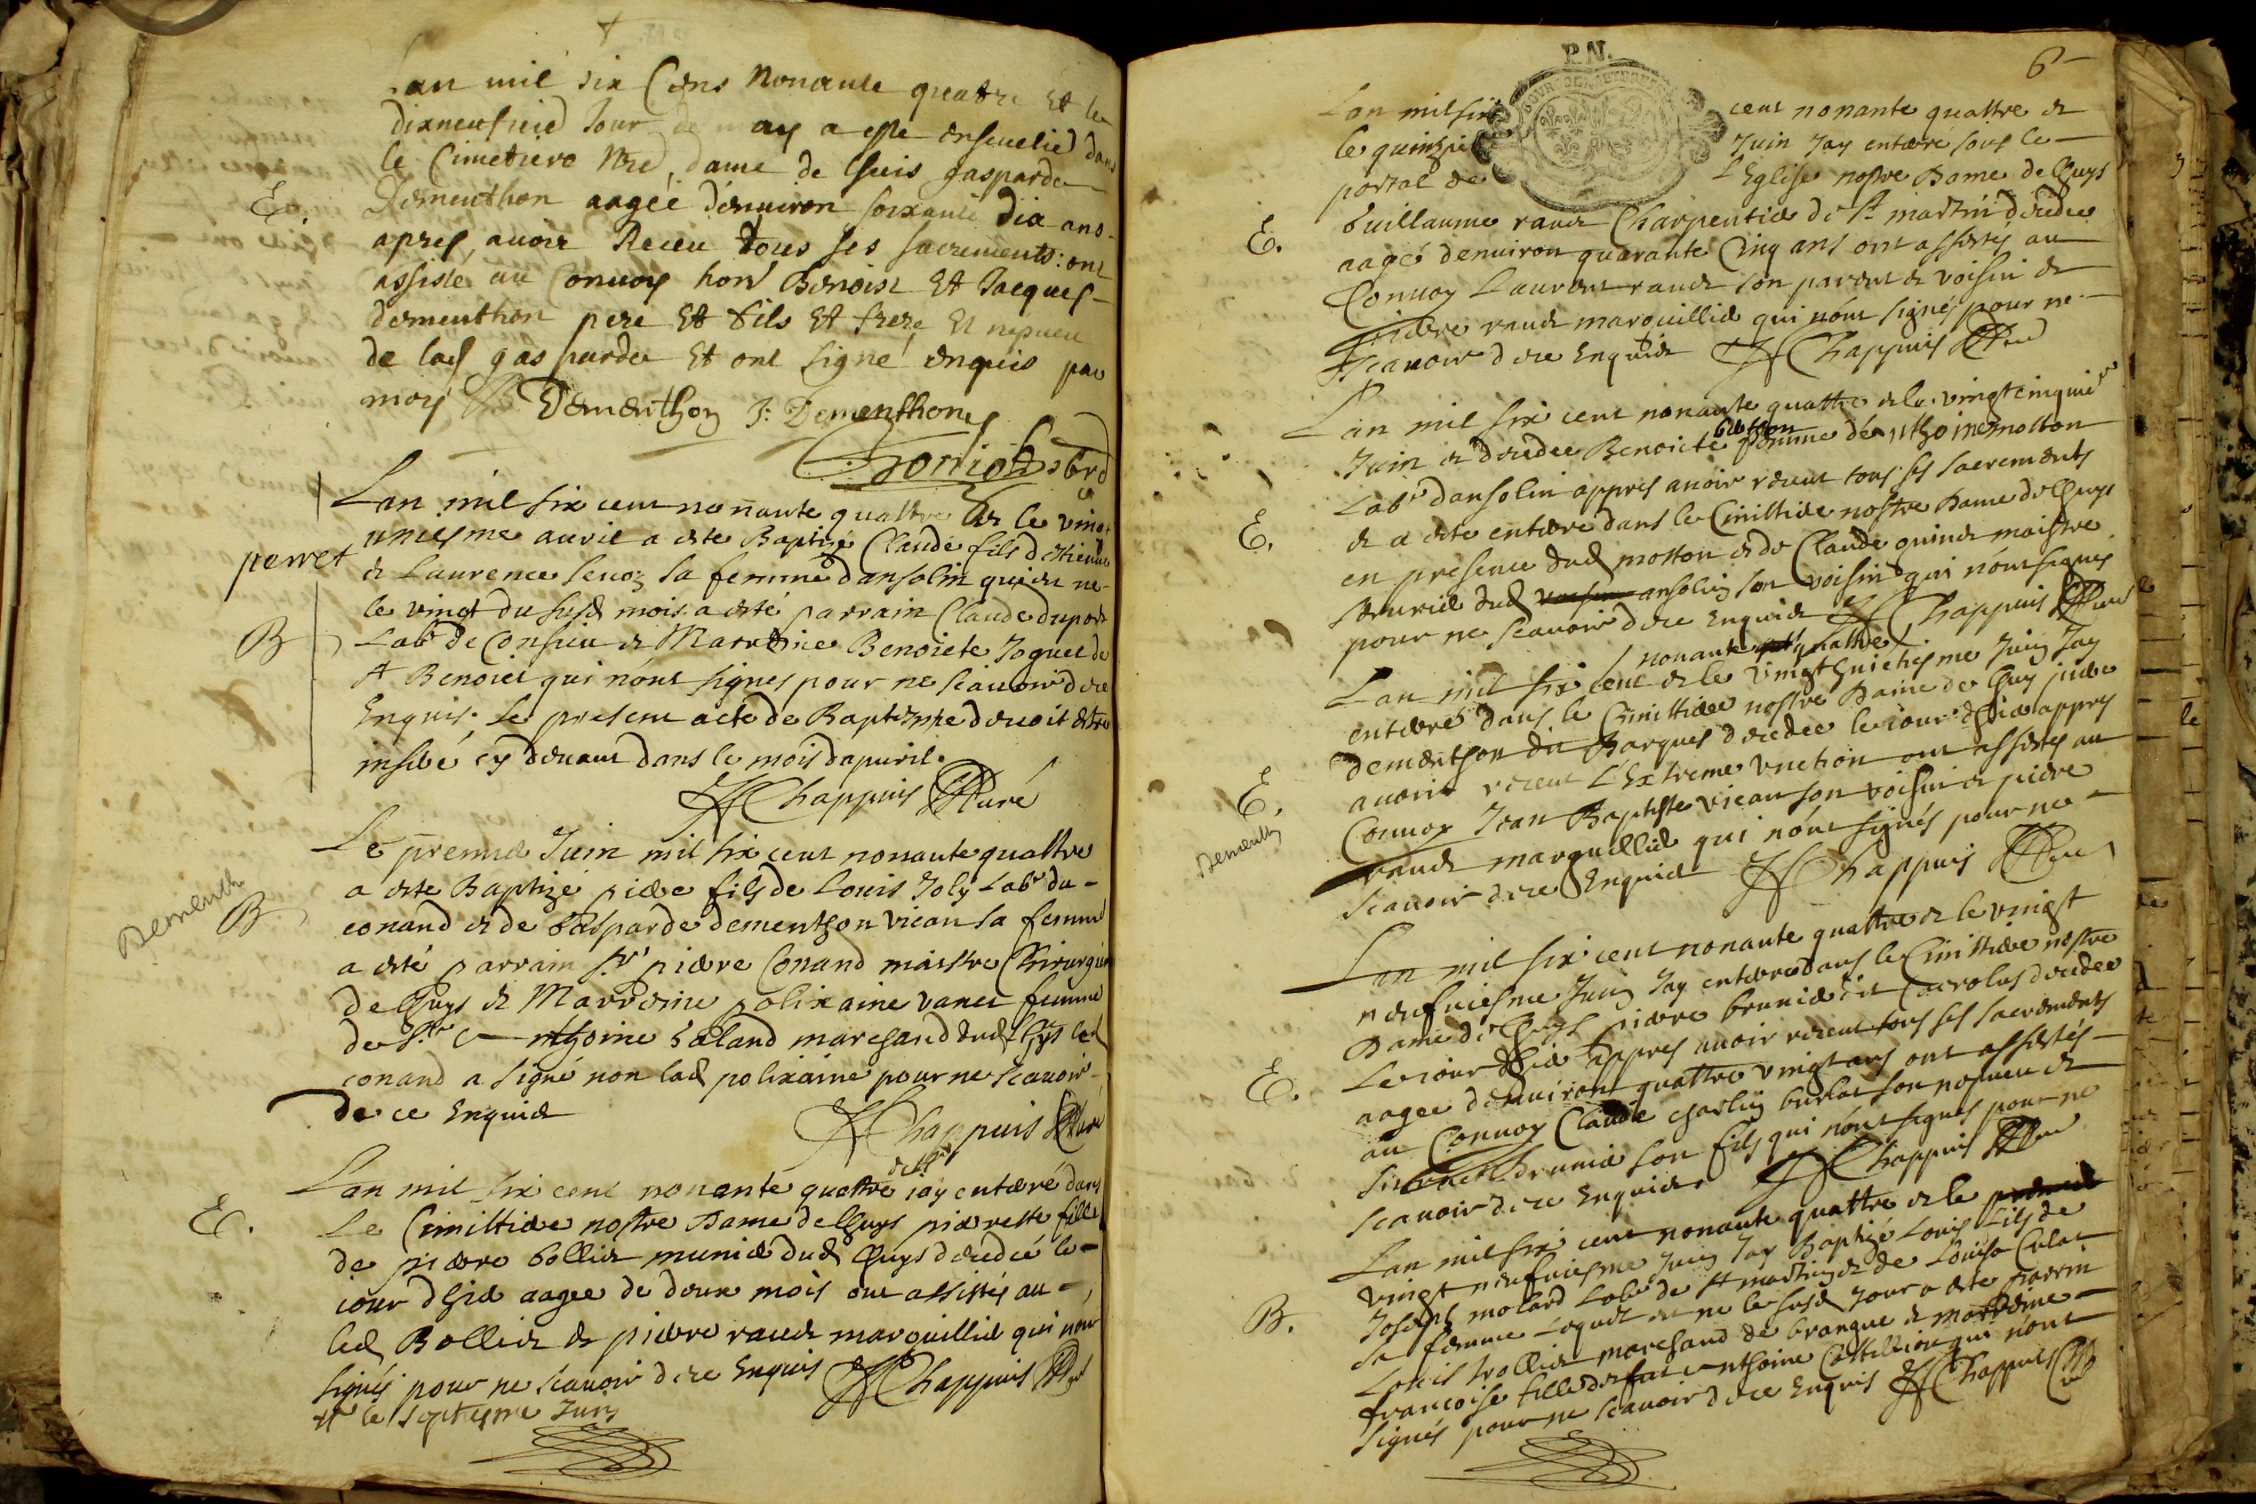 Lan mil six Cens Nonante quatre Et le
dixneufvie Jour de may a este ensevelie dans
le Cimetiere Nre dame de lhuis gasparde
E. Dementhon aagée d'environ soixante dix ans
apres avoir Receu tous ses sacrements: ont
assisté au Convoy hon Benoist Et Jacques
dementhon pere Et fils Et frere Et nepveu
de lad gasparde Et ont signé enquis par
moy B Dementhon J: Dementhon

Lan mil six cent nonante quattre et le vingt
perret uniesme avril a este Baptizé Claude fils d'Estienne
et Laurence sa femme dansolin qui est ne
le vingt du susd mois a esté parrain Claude dupont
B Labr de Consieu et Marreine Benoiete Joguet de
st Benoict qui n'ont signes pour ne scavoir de ce
Enquis. Le present acte de Baptesme devoit estre
inseré cy devant dans le mois dapvril.
Chappuis Curé
Le premie Juin mil six cent nonante quattre
Dementh a este Baptizé piere fils de Louis Joly Labr du
B conand et de Gasparde dementhon vican sa femme
a esté parrain sr piere Conand maistre Chirurgien
de lhuys et Marreine polixaine vanet femme
de sr Anthoine Galand marchand dud lhuys led
conand a signé non lad polixaine pour ne scavoir
de ce Enquise
Chappuis Curé
Lan mil six cent nonante quattre et le jay enterré dans
E. Le Cimittiere nostre Dame de lhuys pierrette fille
de piere bollier munie dud lhuys decedée le
jour d'hier aagee de deux mois ont assistés au
led Bollier et piere raude marguillie qui n'ont
signés pour ne scavoir de ce Enquis Chappuis Curé
et le septiesme Juin

P.N.
6
Lan mil six cent nonante quattre et
le quinzie Juin Jay enterré sous le
portal de L'Eglise nostre Dame de lhuys
E. Guillaume raude Charpentie de st martin decedee
aagé denviron quarante Cinq ans ont assistés au
Convoy Laurent raude son parent et voisin et
piere raude marguillie qui n'ont signés pour ne
scavoir de ce Enquise Chappuis Curé
Lan mil six cent nonante quattre et le vingtcinquie
Juin et decedee Benoiete femme de anthoine motton
Labr dansolin appres avoir receut tous ses sacrements
E. et a este enterre dans le Cimittiere nostre Dame de lhuys
en presence dud motton et de Claude guinet maistre
dud ansolin son voisin qui n'ont signes
pour ne scavoir de ce Enquise Chappuis Curé
nonante quattre
Lan mil six cent et le vingt huictiesme Juin Jay
enterre dans le Cimittiere nostre Dame de lhuy piere
dementhon dit Barques decedee le jour d'hier appres
E. avoir receut L'Extreme unction ont assistés au
Dementh Convoy Jean Baptiste vican son voisin et piere
raude marguillie qui n'ont signés pour ne
scavoir de ce Enquise Chappuis Curé
Lan mil six cent nonante quattre et le vingt
neufviesme Juin Jay enterre dans le Cimittiere nostre
Dame de lhuys piere brunie dit Carrolus decedee
E. Le jour d'hier appres avoir receut tous ses sacrements
aagee denviron quattre vingt ans ont assistés
au Convoy Claude charlin burlat son nepveu et
brunie son fils qui n'ont signes pour ne
scavoir de ce Enquise. Chappuis Curé
Lan mil six cent nonante quattre et le
vingt neufviesme Juin Jay Baptizé Louis fils de
B. Joseph molard Labr de st martin et de Louise Culat
sa femme Lequel est ne le susd jour a este parrin
Louis trollier marchand de brangue et marreine
francoise fille de feu anthoine Castillion qui n'ont
signés pour ne scavoir de ce Enquis Chappuis Curé